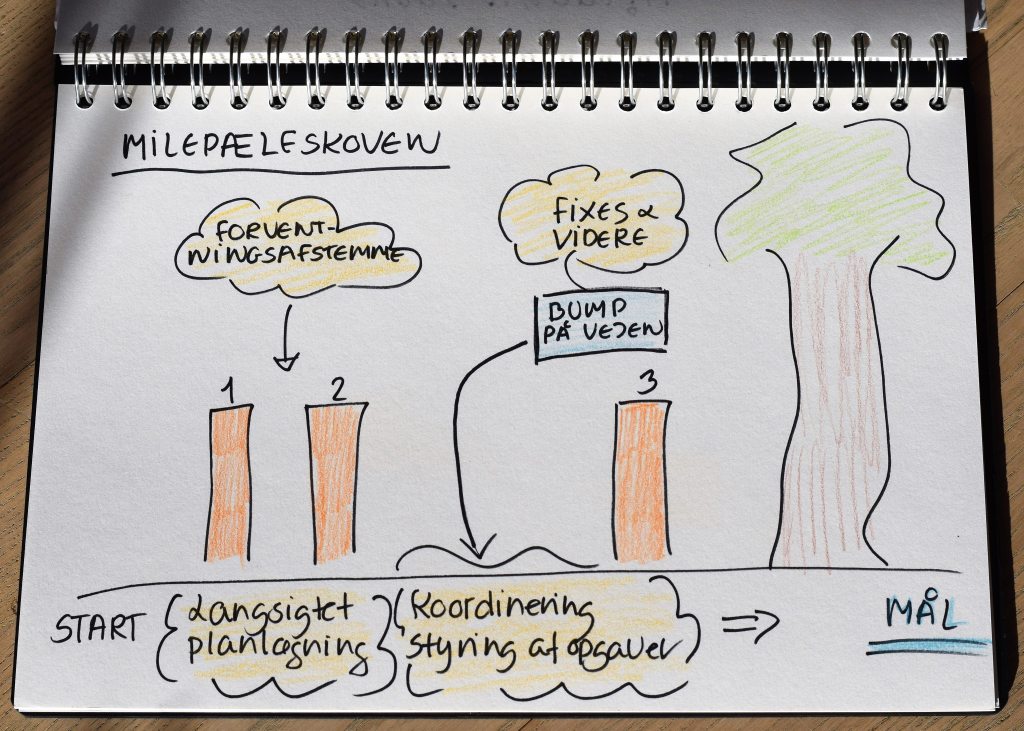 MILEPÆLESKOVEN
FORVENT-
NINGSAFSTEMME
FIXES &
VIDERE
BUMP
PÅ VEJEN
1
2
3
START
Langsigtet
planlægning
Koordinering
styring af opgaver
MÅL